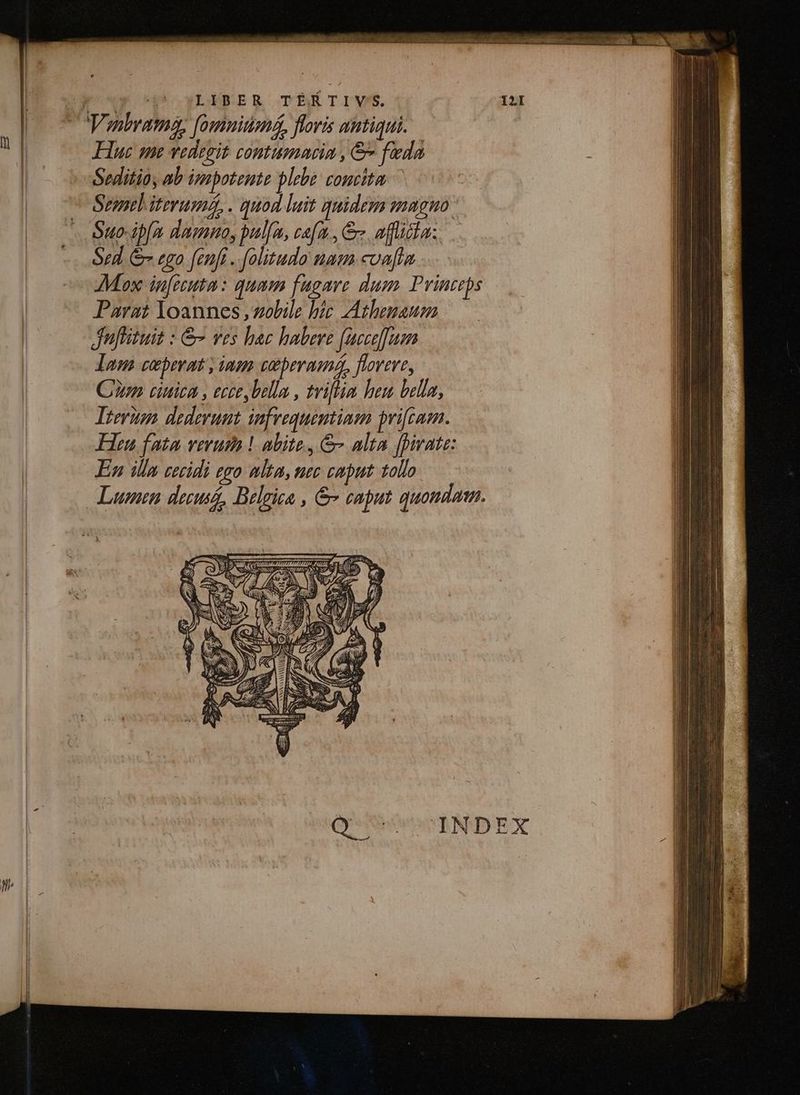 LIBER TERTIVS. 121
Vmbramq́, ſomniúmq́, floris antiqui.
Huc me redegit contumacia, & fœda
Seditio, ab impotente plebe concita
Semel iterumq́,. quod luit quidem magno
Suo ipſa damno, pulſa, cæſa, & afflicta:
Sed & ego ſenſi. ſolitudo nam vvaſta
Mox inſecuta: quam fugare dum Princeps
Parat Ioannes, nobile hîc Athenæum
Juſtituit: & res hac habere ſucceſſum
Iam cœperat, iam cœperamq́, florere,
Cùm ciuica, ecce, bella, triſtia heu bella,
Iterùm dederunt infrequentiam priſcam.
Heu fata rerum! abite, & alta ſpirate:
En illa cecidi ego alta, nec caput tollo
Lumen decusq́, Belgicæ, & caput quondam.
Q INDEX